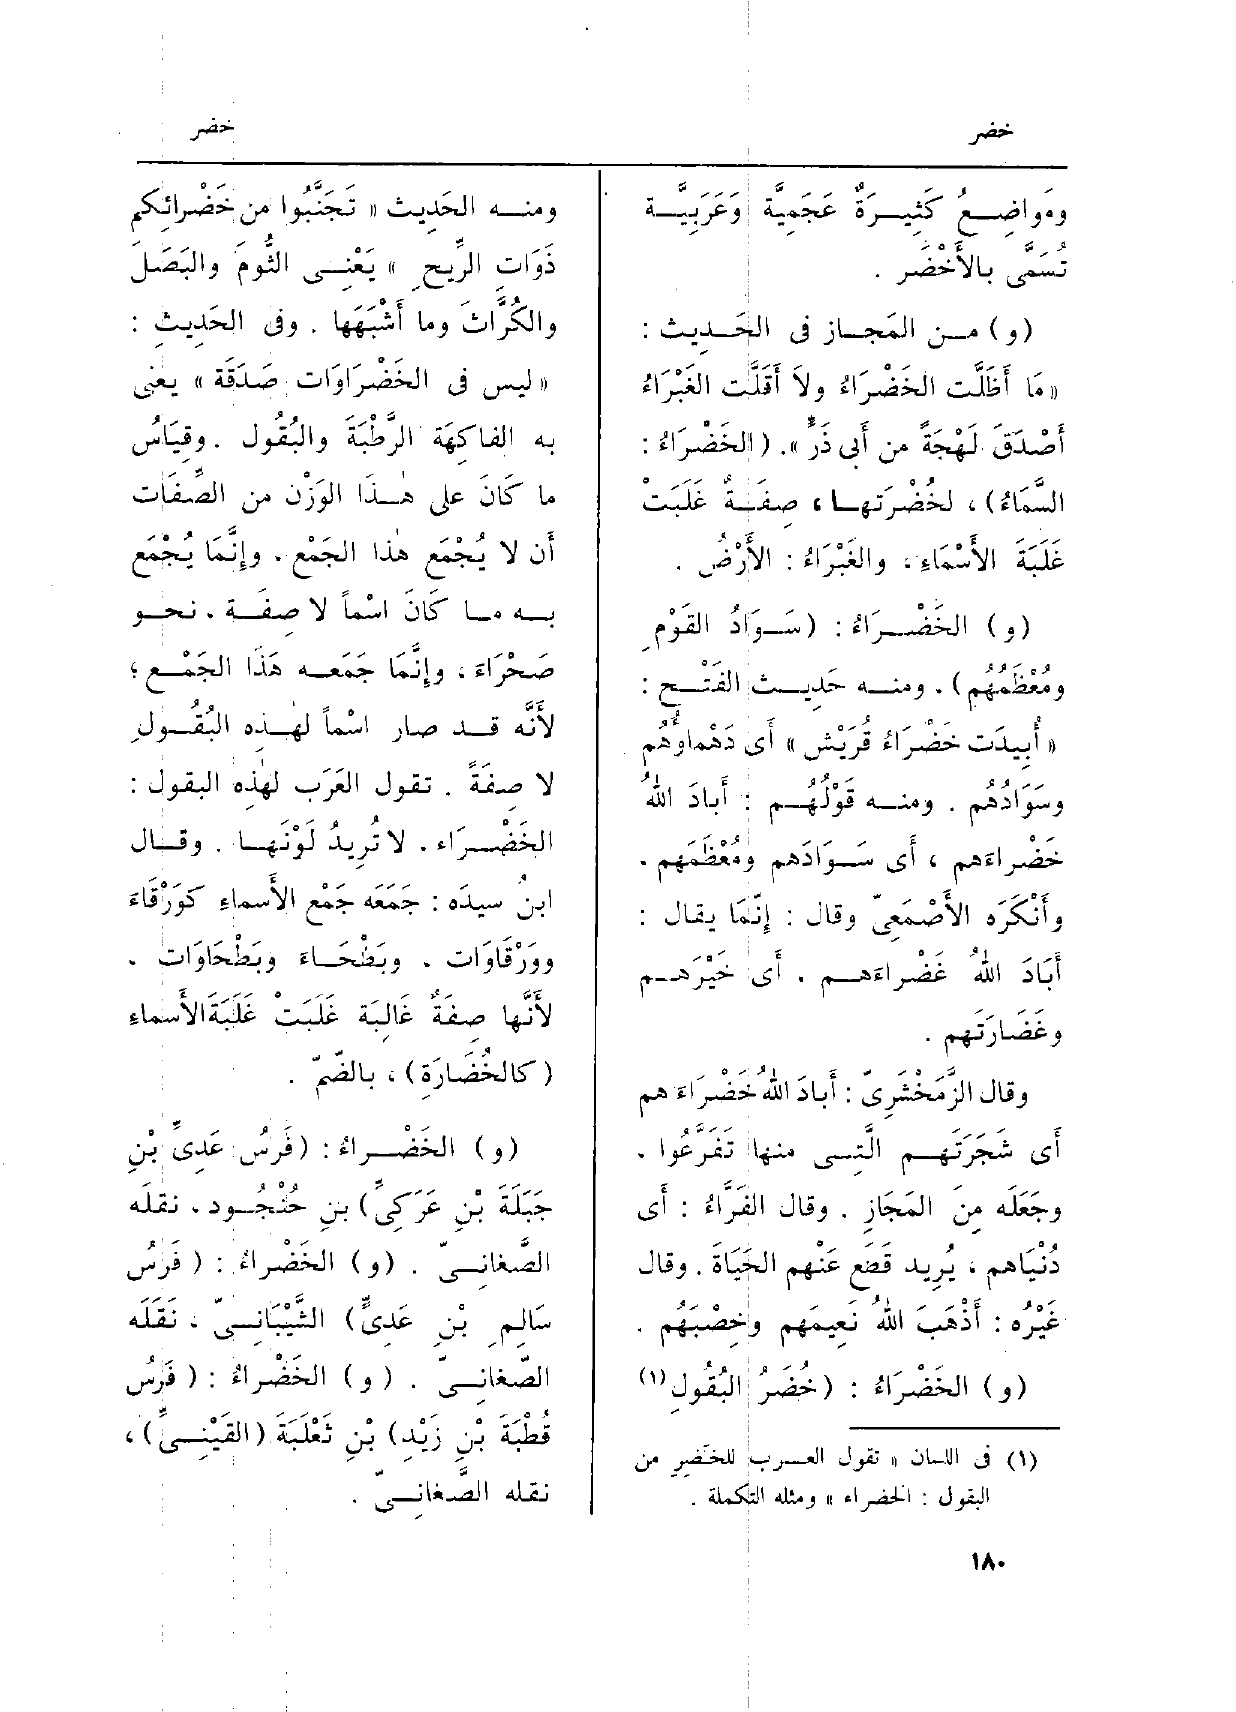 خضر
خضر
ومَواضِعُ كَثِيرَةٌ عَجَمِيَّة وَعَرَبِيَّة
تُسَمَّى بالأَخْضَر .
(و) من المَجاز فى الحَديث :
« مَا أَظَلَّت الخَضْرَاءُ ولاَ أَقَلَّت الغَبْرَاءُ
أَصْدَقَ لَهْجَةً من أَبى ذَرٍّ ». (الخَضْرَاءُ :
السَّمَاءُ) ، لخُضْرَتها ، صِفَةٌ غَلَبَتْ
غَلَبَةَ الأَسْمَاءِ ، والغَبْرَاءُ : الأَرْضُ .
(و) الخَضْراءُ : (سَوَادُ القَوْمِ
ومُعْظَمُهُم) . ومنه حَديث الفَتْح :
« أُبِيدَت خَضْرَاءُ قُرَيْش » أَى دَهْماؤُهم
وسَوَادُهُم . ومنه قَوْلُهُم : أَبادَ اللهُ
خَضْراءَهم ، أَى سَوَادَهم ومُعْظَمَهم .
وأَنْكَرَه الأَصْمَعِىّ وقال : إِنَّمَا يقال :
أَبَادَ اللهُ غَضْراءَهم . أَى خَيْرَهم
وغَضَارَتَهم .
وقال الزَّمَخْشَرِىّ : أَبادَ اللهُ خَضْرَاءَهم
أَى شَجَرَتَهم الَّتِى منها تَفَرَّعُوا .
وجَعَلَه مِنَ المَجَازِ . وقال الفَرَّاءُ : أَى
دُنْيَاهم ، يُرِيد قَطَع عَنْهم الحَيَاةَ . وقال
غَيْرُه : أَذْهَبَ اللهُ نَعِيمَهم وخِصْبَهُم .
(و) الخَضْرَاءُ : (خُضَرُ البُقُولِ (١)
(١) فى اللسان « تقول العرب للخَضِرِ من
البقول : الخضراء » ومثله التكملة .
ومنه الحَدِيث « تَجَنَّبُوا من خَضْرائِكم
ذَوَاتِ الرِّيحِ » يَعْنِى الثُّومَ والبَصَلَ
والكُرَّاثَ وما أَشْبَهَها . وفى الحَدِيث :
« ليس فى الخَضْرَاوَات صَدَقَة » يعنى
به الفاكهَة الرَّطْبَة والبُقُول . وقِيَاسُ
ما كَانَ على هٰذَا الوَزْن من الصِّفَات
أَن لا يُجْمَع هذا الجَمْع . وإِنَّمَا يُجْمَع
به ما كَانَ اسْماً لا صِفَة ، نحو
صَحْرَاءَ ، وإِنَّمَا جَمَعه هَذَا الجَمْع ؛
لأَنَّه قد صار اسْماً لهٰذه البُقُولِ
لا صِفَةً . تقول العَرَب لهٰذه البقول :
الخَضْرَاء . لا تُرِيدُ لَوْنَها . وقال
ابنُ سيدَه : جَمَعَه جَمْعَ الأَسماءِ كوَرْقَاءَ
ووَرْقَاوَات . وبَطْحَاءَ وبَطْحَاوَات .
لأَنَّها صِفَةٌ غَالِبَة غَلَبَتْ غَلَبَةَ الأَسماءِ
(كالخُضَارَةِ) ، بالضَّمّ .
(و) الخَضْراءُ : (فَرَسُ عَدِىِّ بْنِ
جَبَلَةَ بْنِ عَرَكِىٍّ) بنِ حُنْجُود . نقلَه
الصَّغانىّ . (و) الخَضْراءُ : ( فَرَسُ
سَالِمِ بْنِ عَدِىٍّ) الشَّيْبَانِىّ ، نَقَلَه
الصّغانىّ . ( و) الخَضْراءُ : ( فَرَسُ
قُطْبَةَ بْنِ زَيْد) بْنِ ثَعْلَبَةَ (القَيْنِىِّ) ،
نقله الصَّغانىّ .
١٨٠